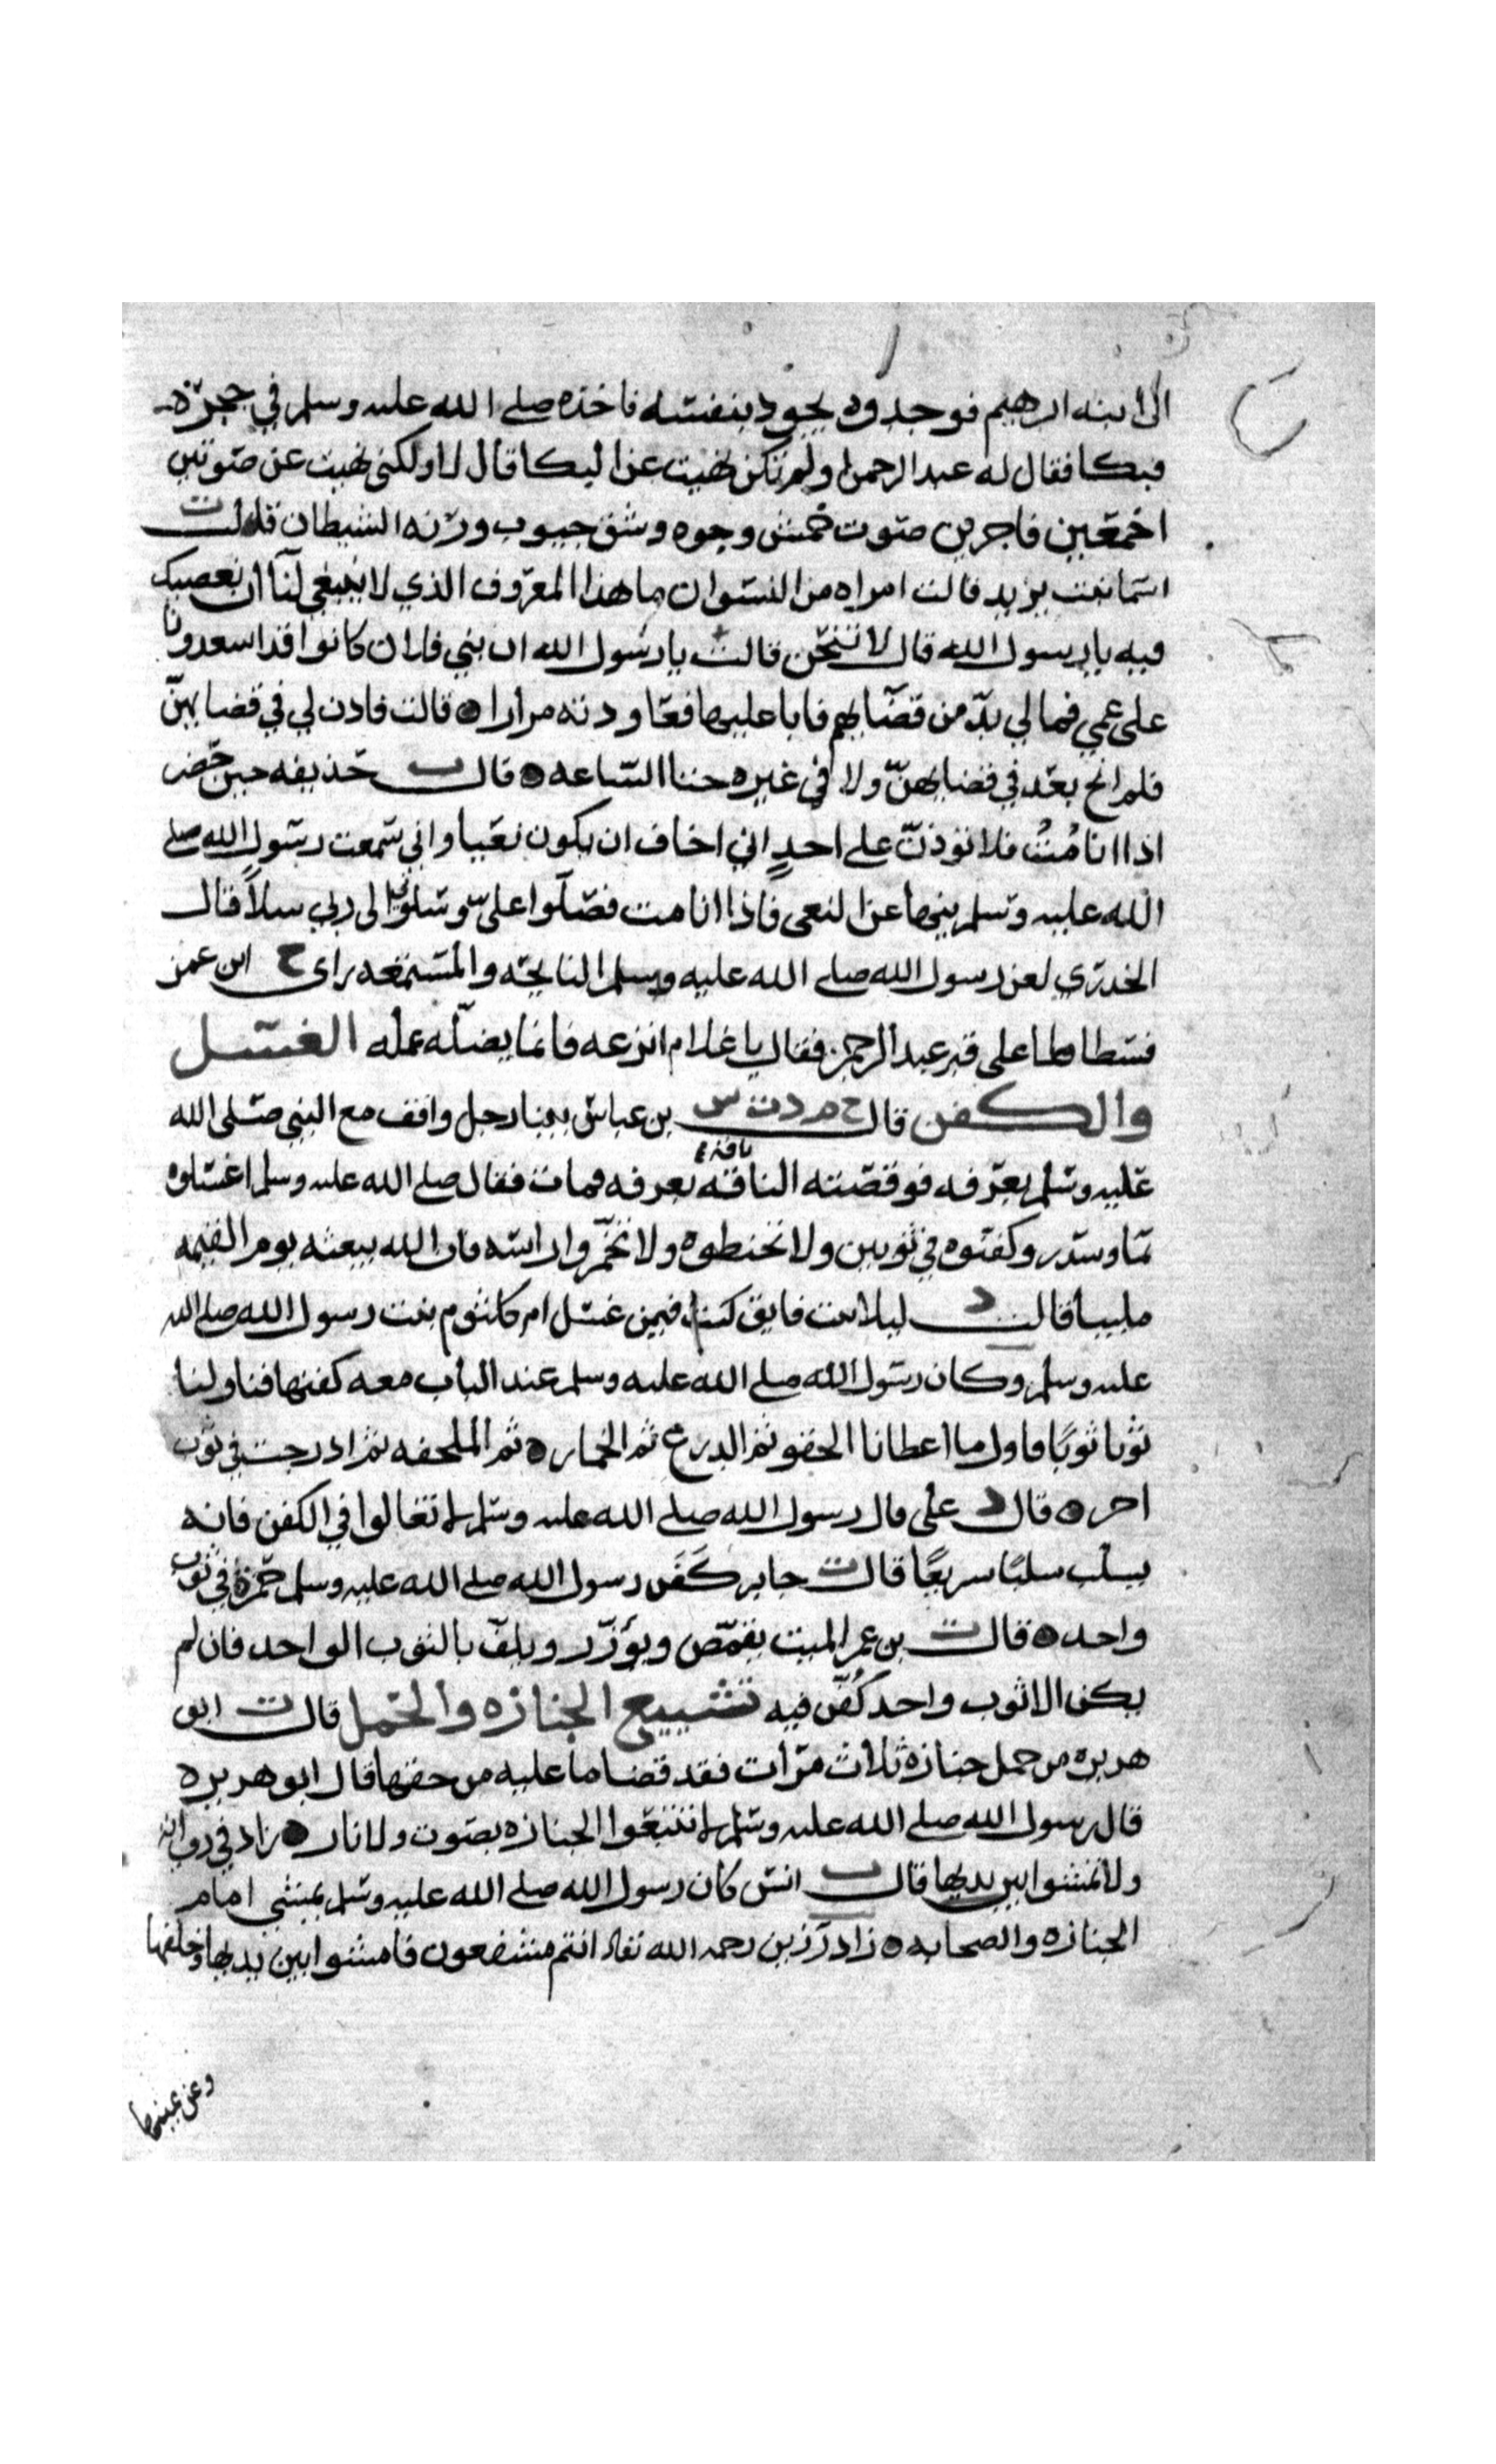 الى ابنه ابرهيم فوجدوه يجود بنفسه فاخذه صلى الله عليه وسلم في حجره
فبكا فقال له عبد الرحمن اولم تكن نهيت عن البكا قال لا ولكني نهيت عن صوتين
احمقين فاجرين صوت خمش وجوه وشق جيوب ورنه الشيطان قالت ت
اسما بنت يزيد قالت امراه من النسوان ما هذا المعروف الذي لا ينبغي لنا ان نعصيك
فيه يا رسول الله قال لا تنحن قالت يا رسول الله ان بني فلان كانوا قد اسعدونا
على عمي فما لي بد من قضايهم فابا عليها فعاودته مرارا ه قالت فاذن لي في قضايهن
فلم انح بعد في قضايهن ولا في غيره حتا الساعه ه قال ت حذيفه حين حضر
اذا انا مُتُّ فلا توذن على احدٍ اني اخاف ان يكون نعيا واني سمعت رسول الله صلى
الله عليه وسلم ينها عن النعي فاذا انا مت فصلوا علي وسلوني الى ربي سلاً قال
الخدري لعن رسول الله صلى الله عليه وسلم النايحه والمستمعه راى خ ابن عمر
فسطاطا على قبر عبد الرحمن فقال يا غلام انزعه فانما يضله عمله الغسل
والكفن قال خ م د ت س بن عباس بينا رجل واقف مع النبي صلى الله
عليه وسلم بعرفه فوقصته الناقه ناقته بعرفه فمات فقال صلى الله عليه وسلم اغسلوه
بما وسدر وكفنوه في ثوبين ولا تحنطوه ولا تخمروا راسه فان الله يبعثه يوم القيمه
ملبيا قالت د ليلا بنت قايق كنت فيمن غسل ام كلثوم بنت رسول الله صلى الله
عليه وسلم وكان رسول الله صلى الله عليه وسلم عند الباب معه كفنها فناولنا
ثوبا ثوبًا فاول ما اعطانا الحقو ثم الدرع ثم الخمار ه ثم الملحفه ثم ادرجت في ثوب
اخر ه قال د علي قال رسول الله صلى الله عليه وسلم لا تغالوا في الكفن فانه
يسلب سلبًا سريعًا قال ت جابر كَفَن رسول الله صلى الله عليه وسلم حمزة في ثوب
واحد ه قال ت بن عمر الميت يقمص ويؤزر ويلف بالثوب الواحد فان لم
يكن الا ثوب واحد كُفن فيه تشييع الجنازه والحمل قال ت ابو
هريره من حمل جنازه ثلاث مرات فقد قضا ما عليه من حقها قال ابو هريره
قال رسول الله صلى الله عليه وسلم لا تتبعوا الجنازه بصوت ولا نار ه زاد في روايه
ولا تمشوا بين يديها قال ت انس كان رسول الله صلى الله عليه وسلم يمشي امام
الجنازه والصحابه ه زاد رزين رحمه الله تعالى انتم مشفعون فامشوا بين يديها وخلفها
وعن يمينها